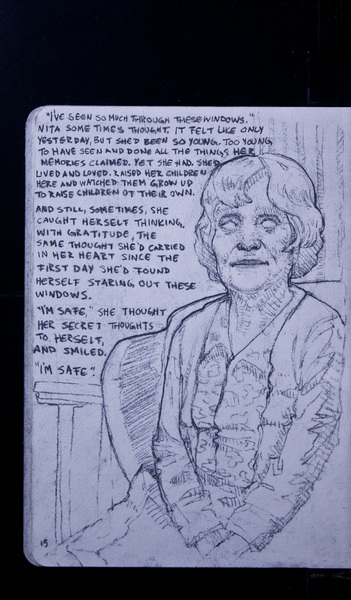 "I'VE SEEN SO MUCH THROUGH THESE WINDOWS."
NITA SOMETIMES THOUGHT. IT FELT LIKE ONLY
YESTERDAY, BUT SHE'D BEEN SO YOUNG. TOO YOUNG
TO HAVE SEEN AND DONE ALL THE THINGS HER
MEMORIES CLAIMED. YET SHE HAD. SHE'D
LIVED AND LOVED. RAISED HER CHILDREN
HERE AND WATCHED THEM GROW UP
TO RAISE CHILDREN OF THEIR OWN.
AND STILL, SOMETIMES, SHE
CAUGHT HERSELF THINKING,
WITH GRATITUDE, THE
SAME THOUGHT SHE'D CARRIED
IN HER HEART SINCE THE
FIRST DAY SHE'D FOUND
HERSELF STARING OUT THESE
WINDOWS.
"I'M SAFE," SHE THOUGHT
HER SECRET THOUGHTS
TO HERSELF,
AND SMILED.
"I'M SAFE".
15